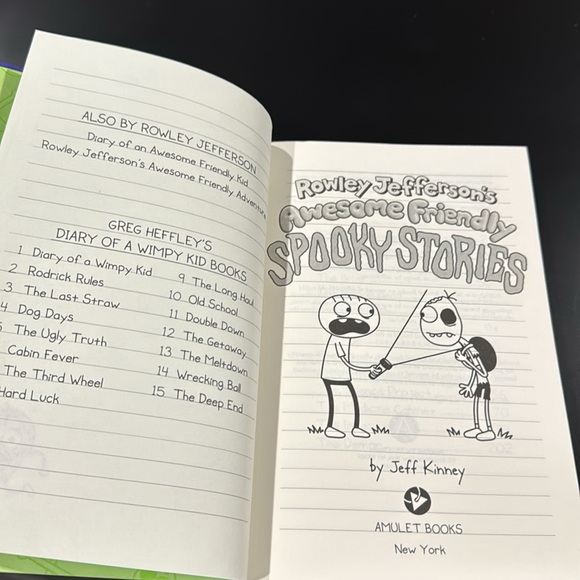 ALSO BY ROWLEY JEFFERSON
Diary of an Awesome Friendly Kid
Rowley Jefferson's Awesome Friendly Adventure
GREG HEFFLEY'S
DIARY OF A WIMPY KID BOOKS
1 Diary of a Wimpy Kid
2 Rodrick Rules
3 The Last Straw
4 Dog Days
5 The Ugly Truth
Cabin Fever
The Third Wheel
Hard Luck
9 The Long Haul
10 Old School
11 Double Down
12 The Getaway
13 The Meltdown
14 Wrecking Ball
15 The Deep End
Rowley Jefferson's
Awesome Friendly
SPOOKY STORIES
by Jeff Kinney
AMULET BOOKS
New York